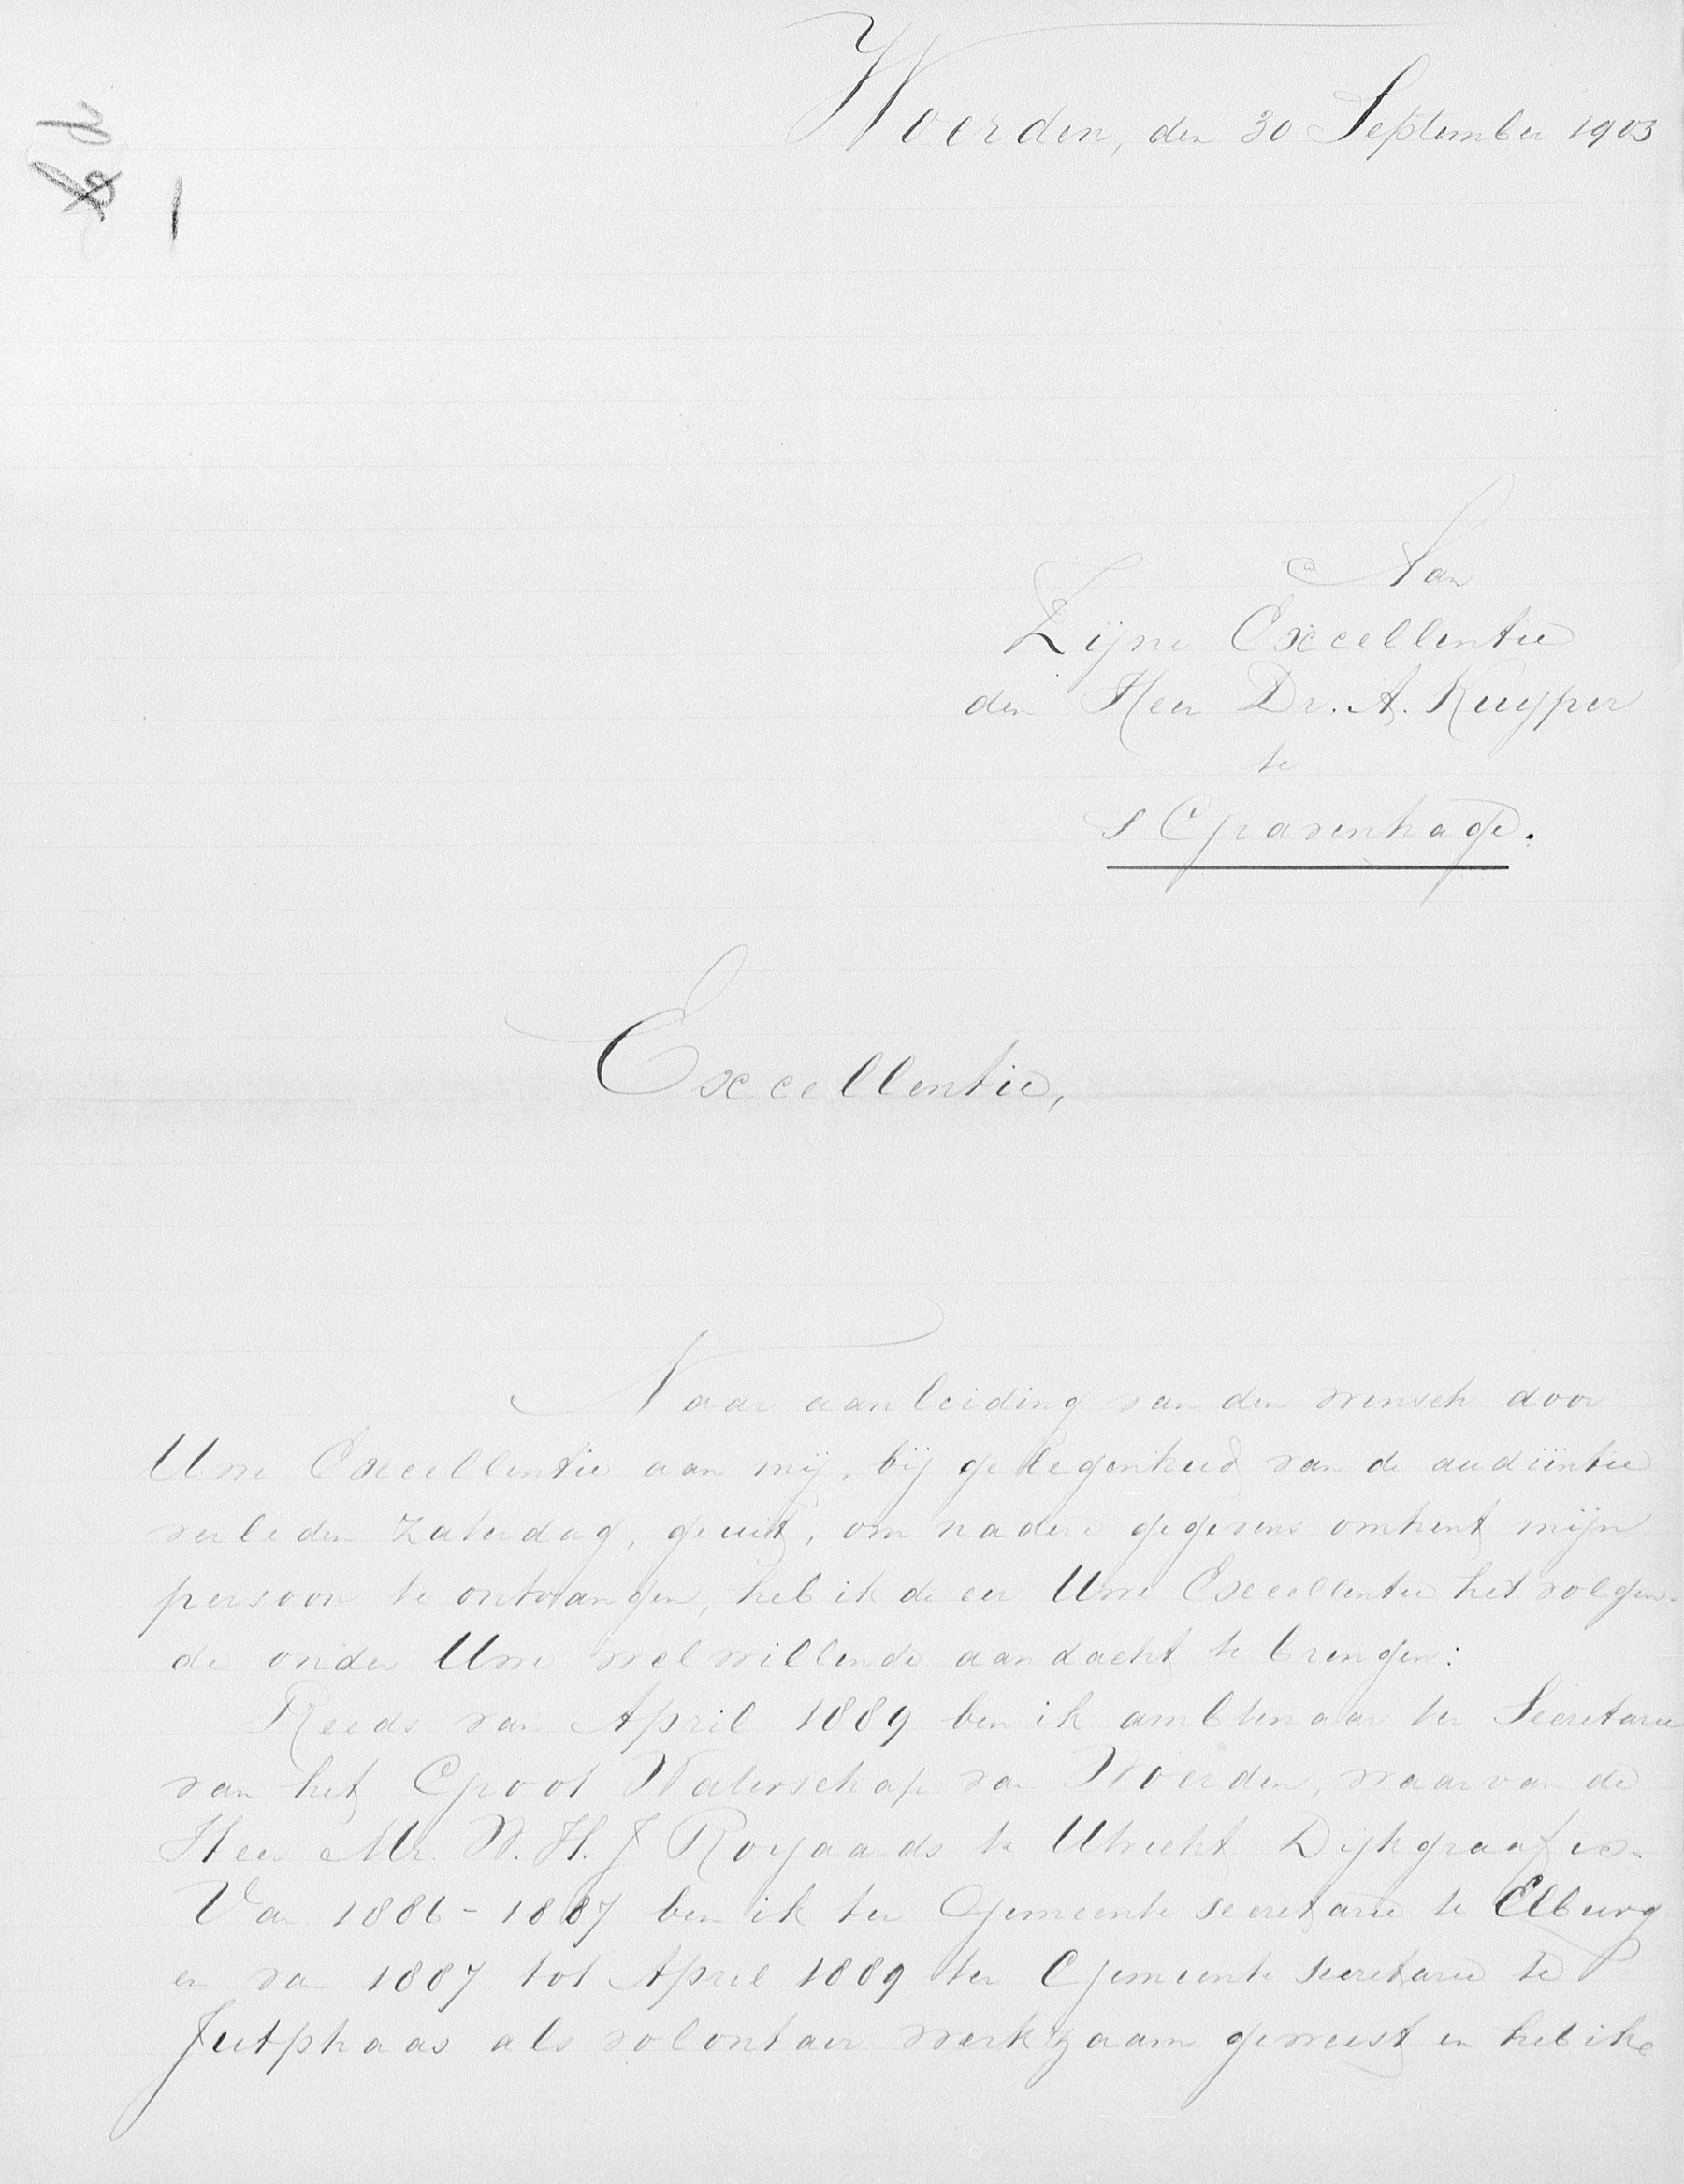 Woerden, den 30 September 1903
Aan
Zijne Excellentie
den Heer Dr. A. Kuyper
te
s Gravenhage.
Excellentie,
Naar aanleiding van den wensch door
Uwe Excellentie aan mij, bij gelegenheid van de audiëntie
verleden Zaterdag, geuit, om nadere gegevens omtrent mijn
persoon te ontvangen, heb ik de eer Uwe Excellentie het volgen-
de onder Uwe welwillende aandacht te brengen:
Reeds van April 1889 ben ik ambtenaar ter Secretarie
van het Groot Waterschap van Woerden, waarvan de
Heer Mr. W. H. J Royaards te Utrecht Dijkgraaf is.
Van 1886-1887 ben ik ter Gemeente secretarie te Elburg
en van 1887 tot April 1889 ter Gemeente secretarie te
Jutphaas als volontair werkzaam geweest en heb ik